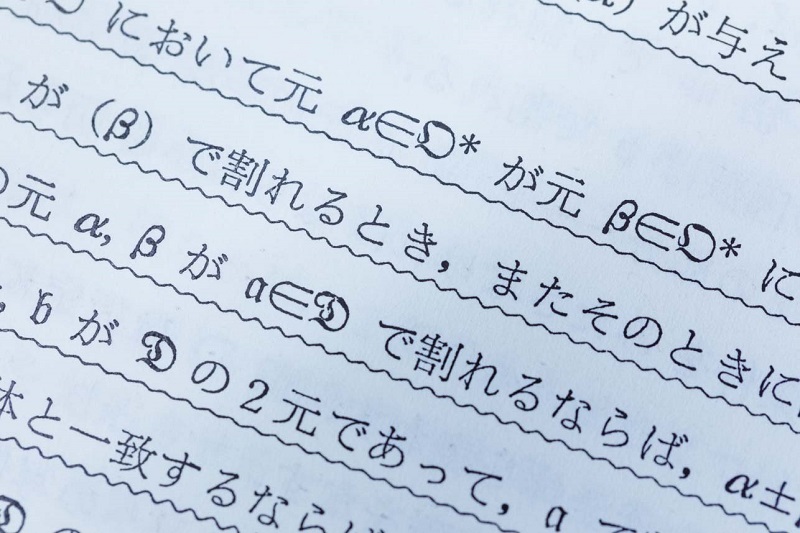 が与え
において元 α∈𝔒* が元 β∈𝔒* に
が (β) で割れるとき, またそのときに
の元 α, β が 𝔞∈𝔇 で割れるならば, α±
, 𝔟 が 𝔇 の2元であって, 𝔞
体と一致するならば